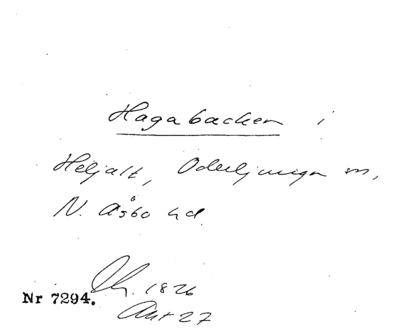 Hagabacken i
Heljalt, Oderljunga sn,
N. Åsbo hd.
Nr 7294.
1826
Akt 27